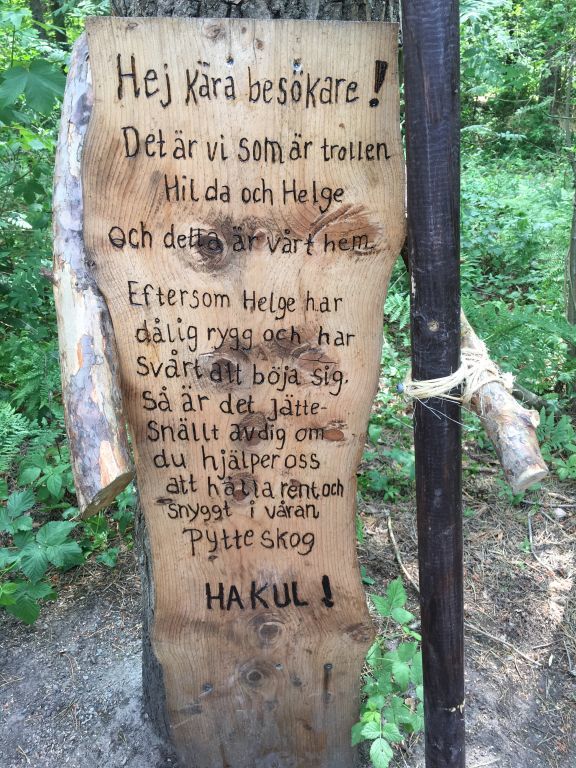 Hej kära besökare!
Det är vi som är trollen
Hilda och Helge
och detta är vårt hem.
Eftersom Helge har
dålig rygg och har
svårt att böja sig.
Så är det jätte-
snällt av dig om
du hjälper oss
att hålla rent och
snyggt i våran
Pytteskog
HA KUL!